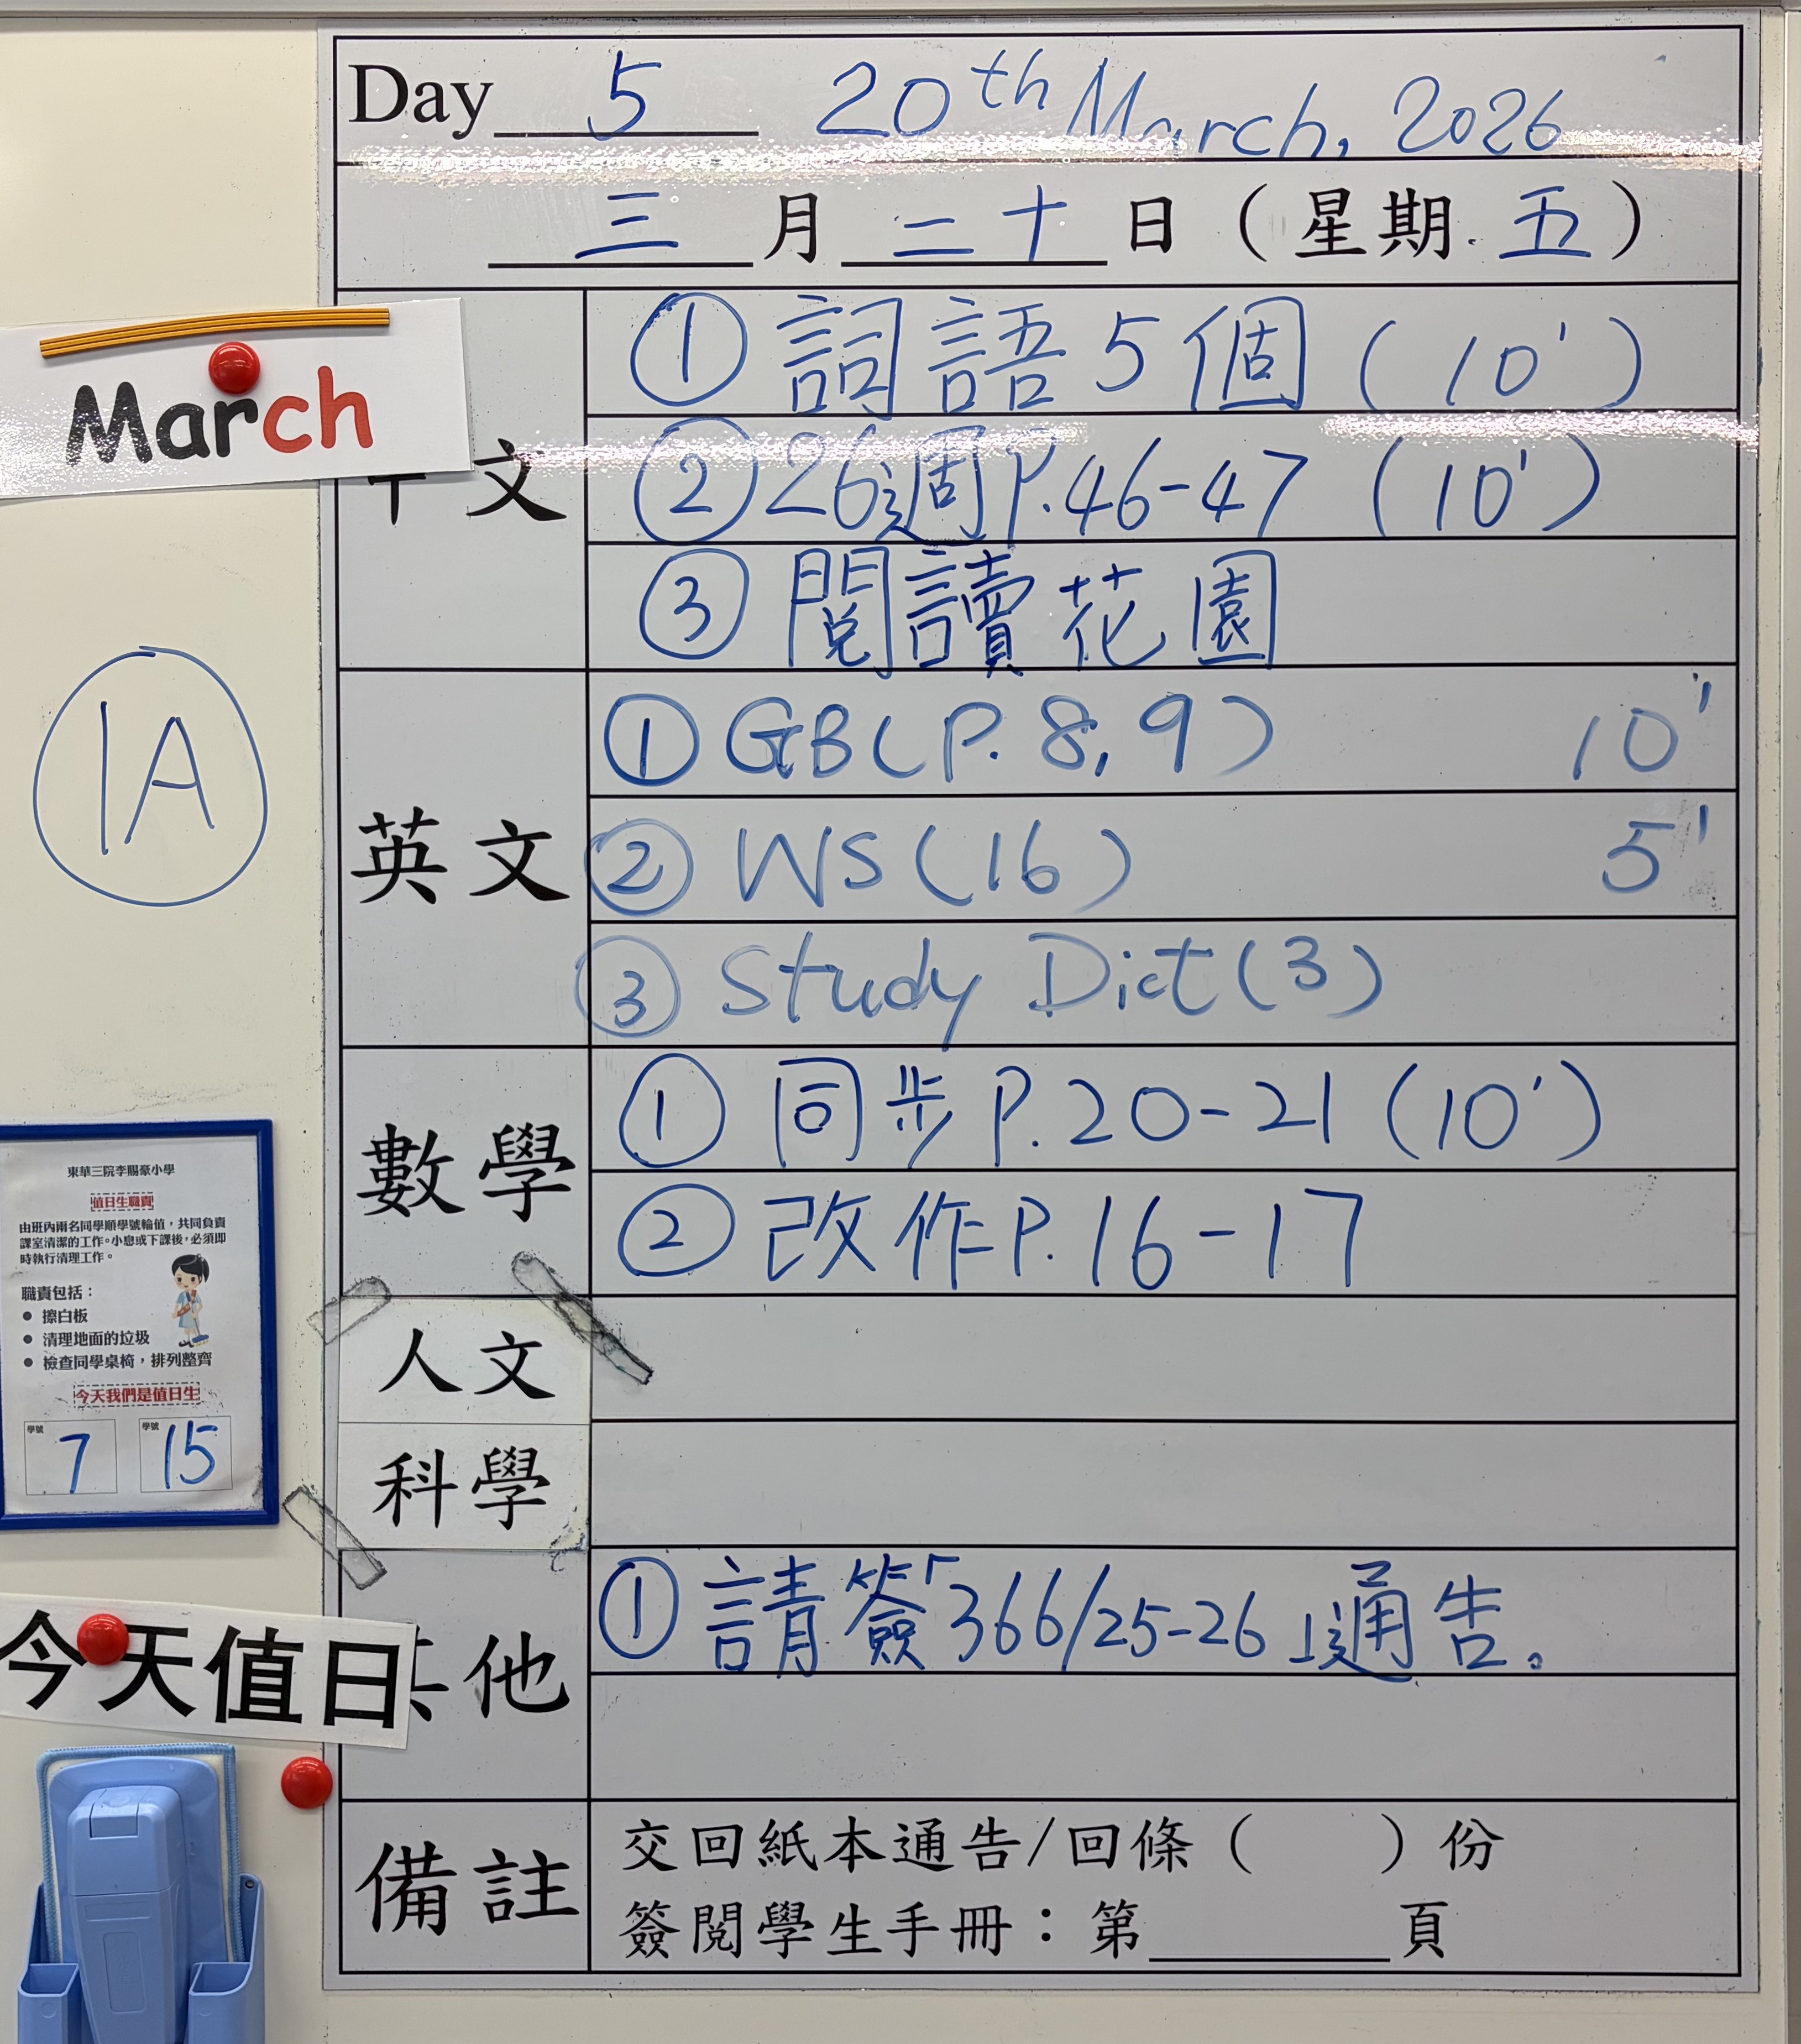 Day 5 20th March, 2026
三月二十日（星期五）
March
文
① 詞語5個 (10')
② 26週P.46-47 (10')
③ 閱讀花園
1A
英文
① GB(P.8,9) 10'
② WS(16) 5'
③ Study Dict(3)
數學
① 同步P.20-21 (10')
② 改作P.16-17
人文
科學
東華三院李賜豪小學
值日生職責
由班內兩名同學順學號輪值，共同負責
課室清潔的工作。小息或下課後，必須即
時執行清理工作。
職責包括：
● 擦白板
● 清理地面的垃圾
● 檢查同學桌椅，排列整齊
今天我們是值日生
學號 7 學號 15
今天值日
其他
① 請簽「366/25-26」通告。
備註
交回紙本通告/回條（ ）份
簽閱學生手冊：第 頁